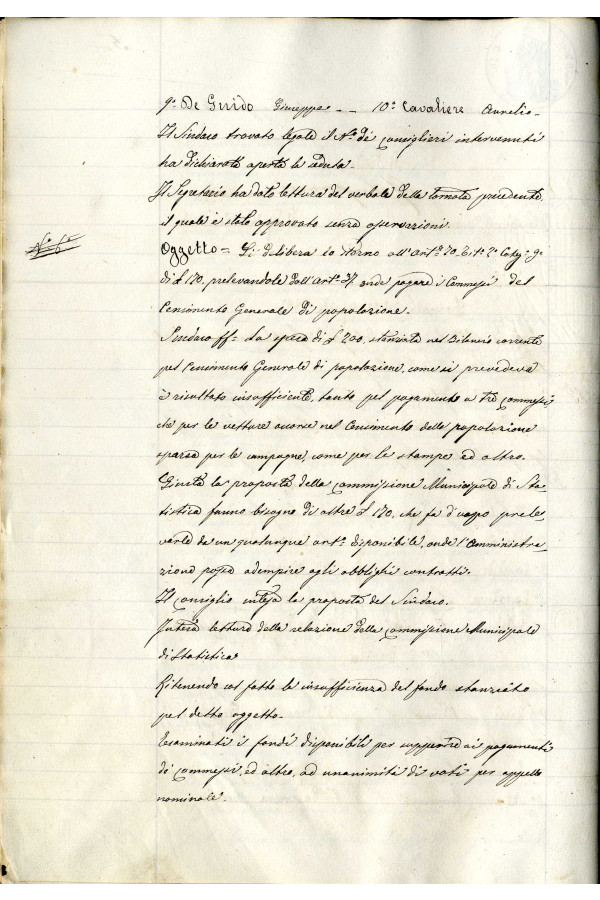 9.° De Guido Giuseppe - - 10.° Cavaliere Aurelio -
Il Sindaco trovato legale il N.° dei Consiglieri intervenuti
ha dichiarato aperta la seduta -
Il Segretario ha dato lettura del verbale della tornata precedente,
il quale è stato approvato senza osservazioni.
Oggetto = Si delibera lo storno all'Art.° 70. Tit.° 2.° Categ.ª 9.ª
di £ 170, prelevandole dall'Art.° 37. onde pagare i Commessi del
Censimento Generale di popolazione.
Sindaco ff.= La spesa di £ 200, stanziata nel Bilancio corrente
pel Censimento Generale di popolazione, come si prevedeva
è risultato insufficiente, tanto pel pagamento a tre commessi
che per le vetture occorse nel Censimento della popolazione
sparsa per le campagne, come per le stampe ed altro.
Giusta la proposta della Commissione Municipale di Sta-
tistica fanno bisogno di altre £ 170, che fa d'uopo prele-
varle da un qualunque art.° disponibile, onde l'Amministra-
zione possa adempire agli obblighi contratti.
Il Consiglio intesa la proposta del Sindaco.
Intesa lettura della relazione della Commissione Municipale
di Statistica
Ritenendo col fatto la insufficienza del fondo stanziato
pel detto oggetto -
Esaminati i fondi disponibili per sopperire ai pagamenti
di commessi, ed altro, ad unanimità di voti per appello
nominale.